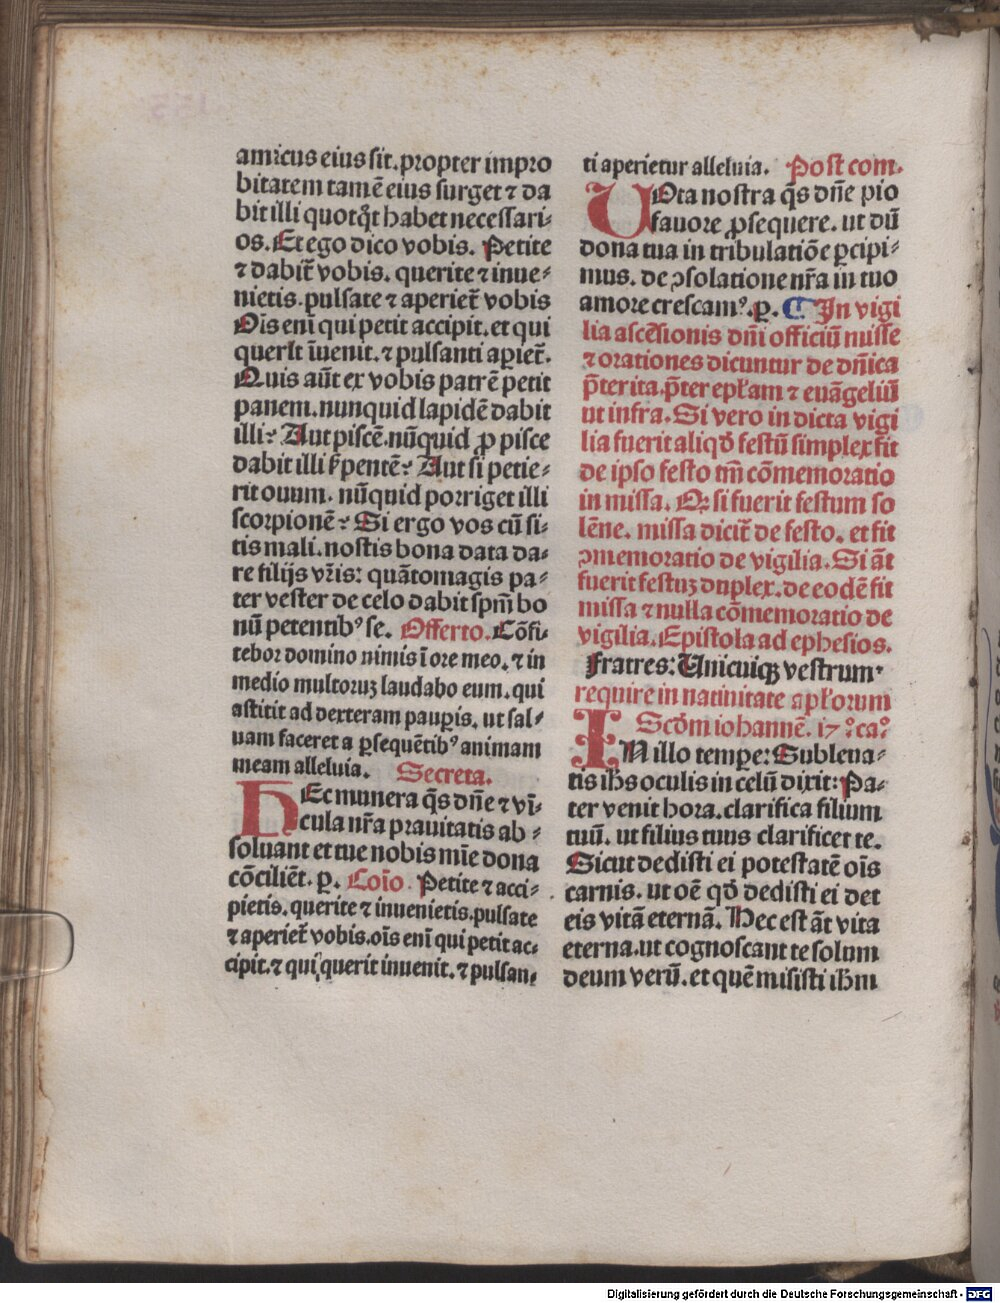 amicus eius sit. propter impro
bitatem tamē eius surget ⁊ da
bit illi quotq̄t habet necessari-
os. Et ego dico vobis. Petite
⁊ dabit̄ vobis. querite ⁊ inue-
nietis. pulsate ⁊ aperiet̄ vobis
Ois enī qui petit accipit. et qui
querit īuenit. ⁊ pulsanti apiet̄.
Quis aūt ex vobis patrē petit
panem. nunquid lapidē dabit
illi? Aut piscē. nūquid ꝓ pisce
dabit illi s̄pentē? Aut si petie-
rit ouum. nūquid porriget illi
scorpionē? Si ergo vos cū si-
tis mali. nostis bona data da-
re filijs vr̄is: quātomagis pa-
ter vester de celo dabit spm̄ bo
nū petentibꝰ se. Offerto. Cōfi-
tebor domino nimis ī ore meo. ⁊ in
medio multoruꝫ laudabo eum. qui
astitit ad dexteram pauꝑis. ut sal-
uam faceret a ꝑsequētibꝰ animam
meam alleluia. Secreta.
HEc munera q̄s dn̄e ⁊ vī-
cula nr̄a prauitatis ab-
soluant et tue nobis mīe dona
cōciliēt. ꝑ. Coīo. Petite ⁊ acci-
pietis. querite ⁊ inuenietis. pulsate
⁊ aperiet̄ vobis. oīs enī qui petit ac-
cipit. ⁊ qui querit inuenit. ⁊ pulsan-
ti aperietur alleluia. Post com.
VOta nostra q̄s dn̄e pio
fauore ꝓsequere. ut dū
dona tua in tribulatiōe ꝑcipi-
mus. de ↄsolatione nr̄a in tuo
amore crescamꝰ. ꝑ. ¶ In vigi
lia ascēsionis dn̄i officiū misse
⁊ orationes dicuntur de dn̄ica
p̄terita. p̄ter epl̄am ⁊ euāgeliū
ut infra. Si vero in dicta vigi
lia fuerit aliqd̄ festū simplex fit
de ipso festo tm̄ cōmemoratio
in missa. Qꝫ si fuerit festum so
lēne. missa dicit̄ de festo. et fit
ↄmemoratio de vigilia. Si āt
fuerit festuꝫ duplex. de eodē fit
missa ⁊ nulla cōmemoratio de
vigilia. Epistola ad ephesios.
Fratres: Unicuiqꝫ vestrum.
require in natiuitate apl̄orum
Scd̄m iohannē. 17°. ca°.
IN illo tempe: Subleua-
tis ih̄s oculis in celū dixit: Pa-
ter venit hora. clarifica filium
tuū. ut filius tuus clarificet te.
Sicut dedisti ei potestatē oīs
carnis. ut oē qd̄ dedisti ei det
eis vitā eternā. Hec est āt vita
eterna. ut cognoscant te solum
deum verū. et quē misisti ih̄m
Digitalisierung gefördert durch die Deutsche Forschungsgemeinschaft - DFG